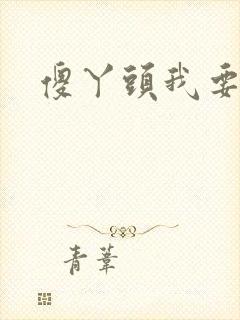 傻丫頭我要
青葦